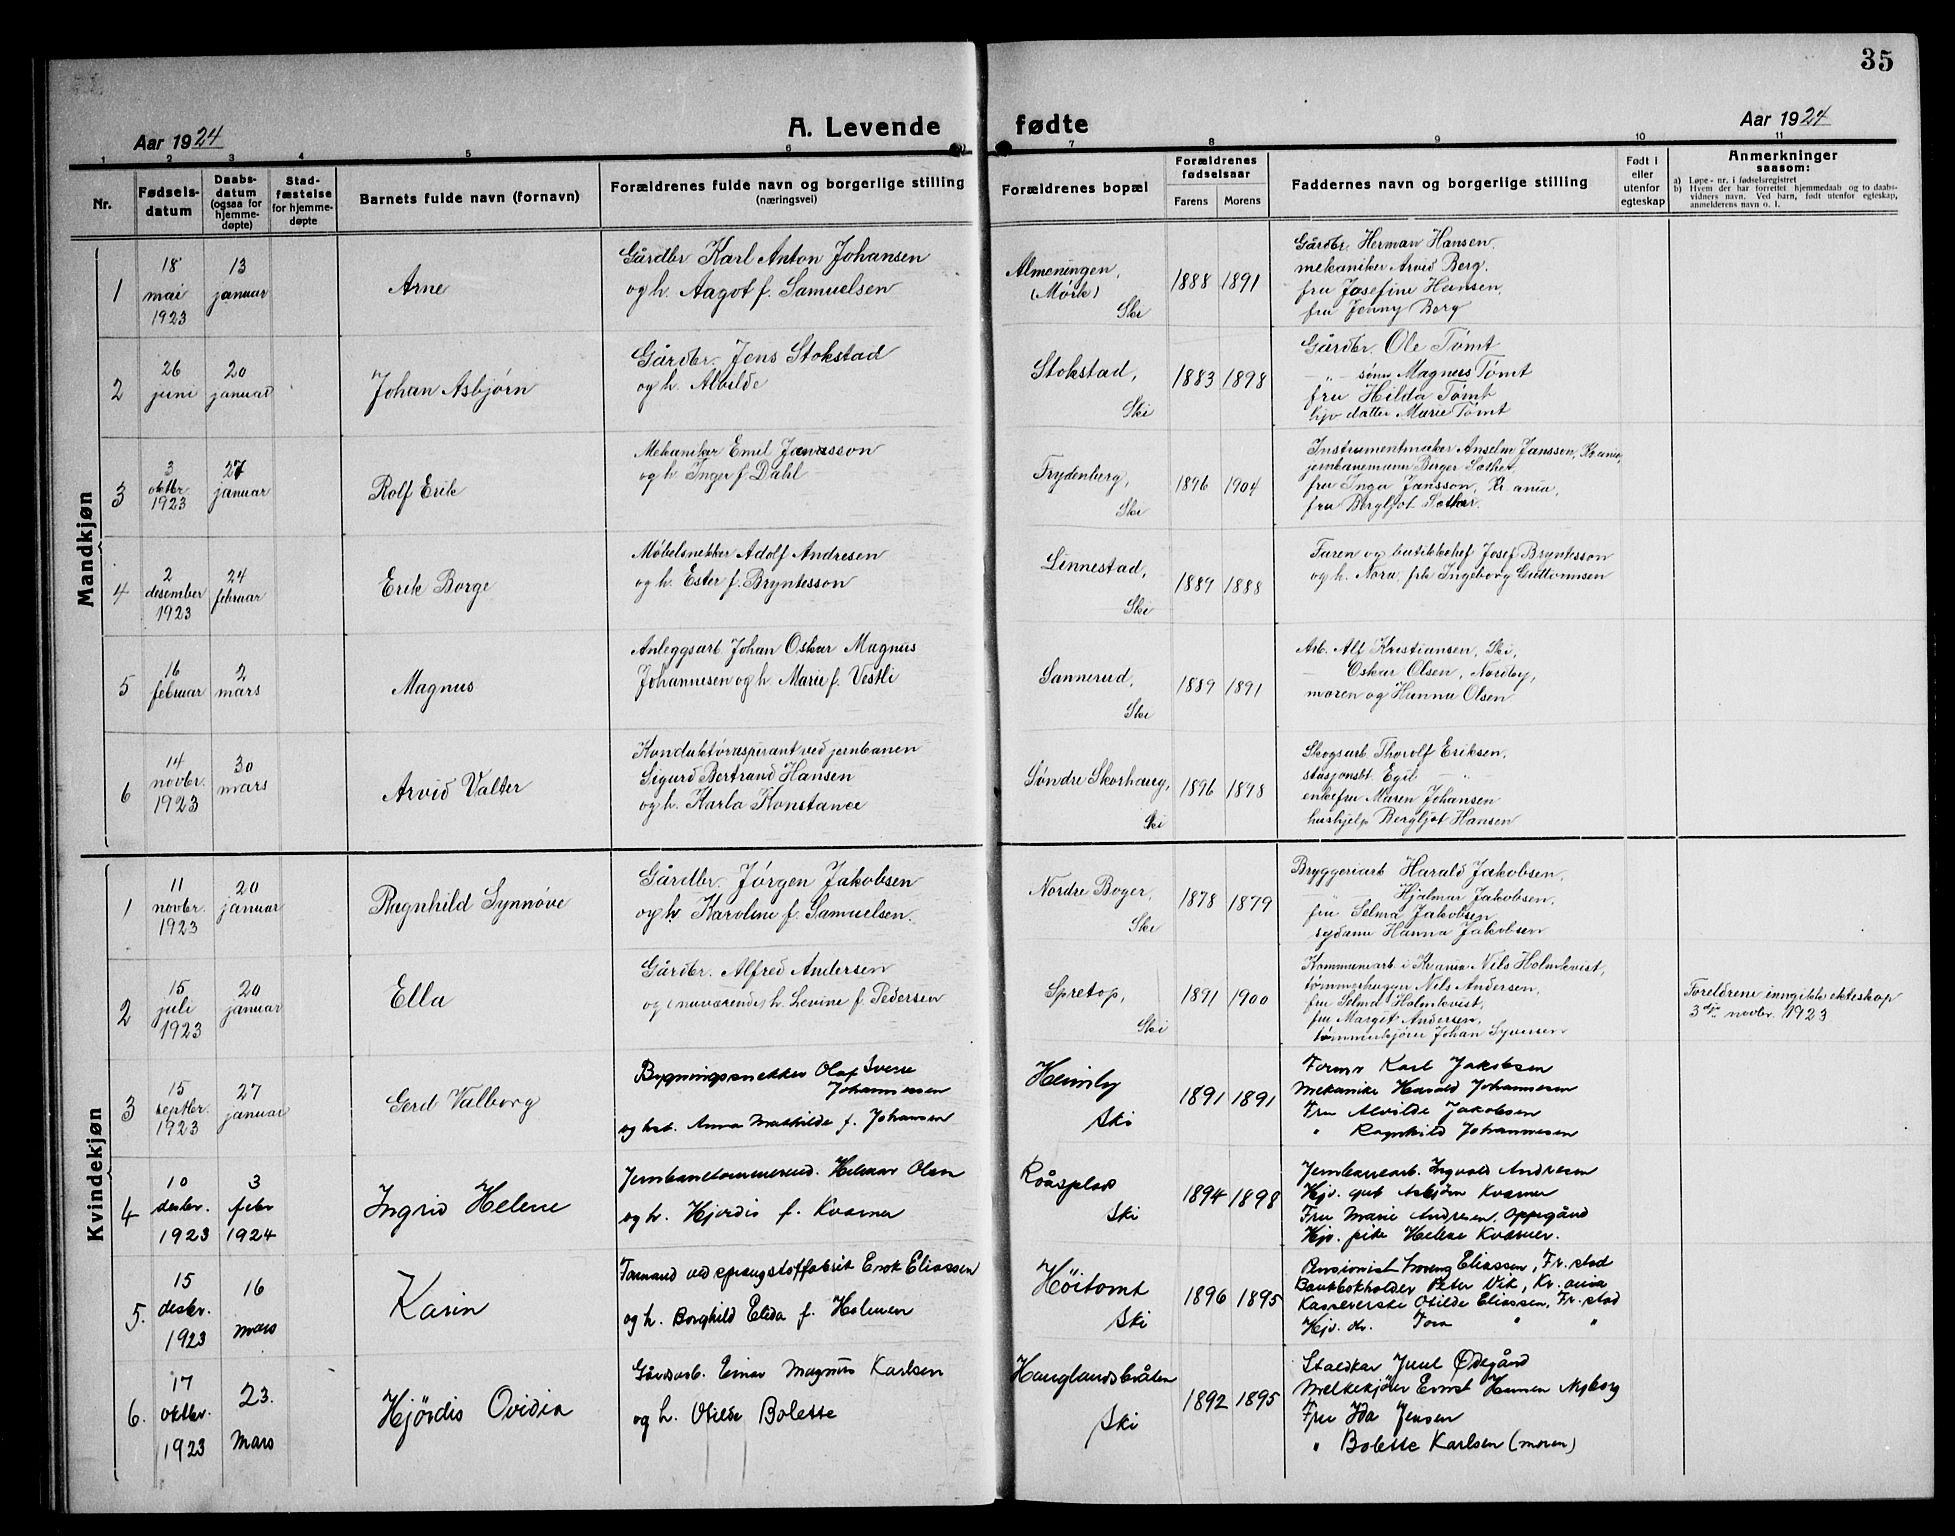 35
Aar 1924
A. Levende fødte
Aar 1924
1 2 3 4 5 6 7 8 9 10 11
Nr.
Fødsels-
datum
Daabs-
datum
(ogsaa for
hjemme-
døpte)
Stad-
fæstelse
for hjemme-
døpte
Barnets fulde navn (fornavn)
Forældrenes fulde navn og borgerlige stilling
(næringsvei)
Forældrenes bopæl
Forældrenes
fødselsaar
Farens
Morens
Faddernes navn og borgerlige stilling
Født i
eller
utenfor
egteskap
Anmerkninger
saasom:
a) Løpe-nr. i fødselsregistret
b) Hvem der har forrettet hjemmedaab og to daabs-
vidners navn. Ved barn, født utenfor egteskap,
anmelderens navn o. l.
Mandkjøn
1
18
mai
1923
13
januar
Arne
Gårdbr. Karl Anton Johansen
og h. Aagot f. Samuelsen
Almeningen,
(Mørk)
Ski
1888
1891
Gårdbr. Herman Hansen,
mekaniker Arvid Berg,
fru Josefine Hansen,
fru Jenny Berg
2
26
juni
20
januar
Johan Asbjørn
Gårdbr. Jens Stokstad
og h. Alvilde
Stokstad,
Ski
1883
1898
Gårdbr. Ole Tømt
— " — sønn Magnus Tømt
fru Hilda Tømt
hjv datter Marie Tømt
3
3
oktbr.
1923
27
januar
Rolf Erik
Mekaniker Emil Jansson
og h. Inger f. Dahl
Frydenberg,
Ski
1896
1904
Instrumentmaker Anselm Janssen, Kr.ania,
jernbanemann Berger Sæther
fru Inga Jansson, Kr.ania,
fru Bergljot Sæther.
4
2
desember
1923
24
februar
Erik Borge
Møbelsnekker Adolf Andresen
og h. Ester f. Bryntesson
Linnestad,
Ski
1889
1888
Faren og butikkchef Josef Bryntesson
og h. Nora, frk Ingeborg Guttormsen
5
16
februar
2
mars
Magnus
Anleggsarb. Johan Oskar Magnus
Johannesen og h. Marie f. Vestli
Sannerud,
Ski
1889
1891
Arb. Alf Kristiansen, Ski,
— Oskar Olsen, Nordby,
moren og Hanna Olsen
6
14
novbr.
1923
30
mars
Arvid Valter
Konduktøraspirant ved jernbanen
Sigurd Bertrand Hansen
og h. Karla Konstance
Søndre Skorhaug,
Ski
1896
1898
Skogsarb. Thorolf Eriksen,
stasjonsbt. Egil — " —
enkefru Maren Johansen
hushjelp Bergljot Hansen
Kvindekjøn
1
11
novbr.
1923
20
januar
Ragnhild Synnøve
Gårdbr. Jørgen Jakobsen
og h Karoline f. Samuelsen.
Nordre Boger,
Ski
1878
1879
Bryggeriarb Harald Jakobsen,
— " — Hjalmar Jakobsen,
fru Selma Jakobsen
sydame Hanna Jakobsen
2
15
juli
1923
20
januar
Ella
Gårdbr. Alfred Andersen
og (nuværende) h. Levine f. Pedersen
Spretop,
Ski
1891
1900
Kommunearb. i Kr.ania Nils Holmkvist,
tømmerhugger Nils Andersen,
fru Selma Holmkvist,
fru Margit Andersen,
tømmerkjører Johan Syversen
Foreldrene inngikk ekteskap
3dje novbr. 1923
3
15
septbr.
1923
27
januar
Gerd Valborg
Bygningssnekker Olaf Sverre
Johannessen
og hst. Anna Mathilde f. Johansen
Heimly
Ski
1891
1891
Former Karl Jakobsen
Mekanike Harald Johannesen
Fru Alvilde Jakobsen
" Ragnhild Johannesen
4
10
desbr.
1923
3
febr
1924
Ingrid Helene
Jernbanetømmermd. Helmar Olsen
og h. Hjørdis f. Kvarner
Roåsplas
Ski
1894
1898
Jernbanearb. Ingvald Andresen
Hjv. gut Asbjørn Kvarner
Fru Marie Andresen, Oppegård
Hjv. pike Helene Kvarner.
5.
15
desbr.
1923
16
mars
Karin
Formand ved sprengstoffabrik Erik Eliassen
og h. Borghild Elida f. Holmen
Høitomt
Ski
1896
1895
Pensionist Eliassen, Fr.stad
Bankbokholder Peter Vik, Kr.ania
Kassererske Otilde Eliassen, Fr.stad
Hjv. dr. Tora " "
6.
17
oktbr.
1923
23.
mars
Hjördis Ovidia
Gårdsarb. Einar Magnus Karlsen
og h. Otilde Bolette
Hauglandsbråten
Ski
1892
1895
Staldkar Juul Ødegård
Melkekjører Ernst Hansen Nyborg
Fru Ida Jensen
" Bolette Karlsen (moren)